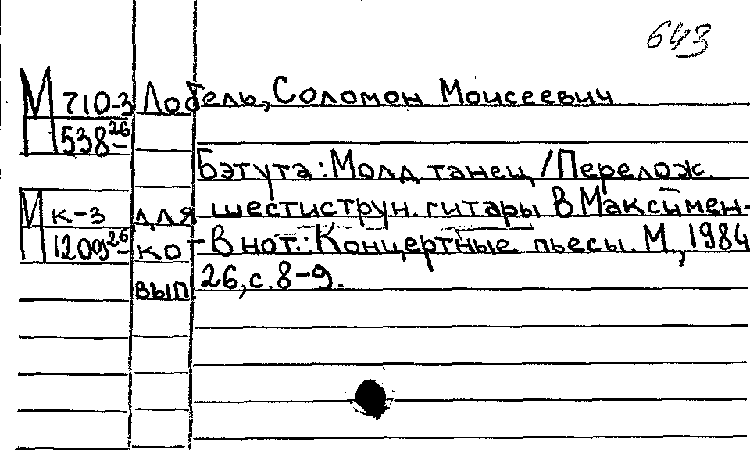 643
М 710-3 Лобель, Соломон Моисеевич
Н 538-26
Бэтута: Молд. танец / Перелож.
М к-3 для шестиструн. гитары В Максимен-
Н 1209-26 ко - В нот.: Концертные пьесы М, 1984
вып 26, с. 8-9.